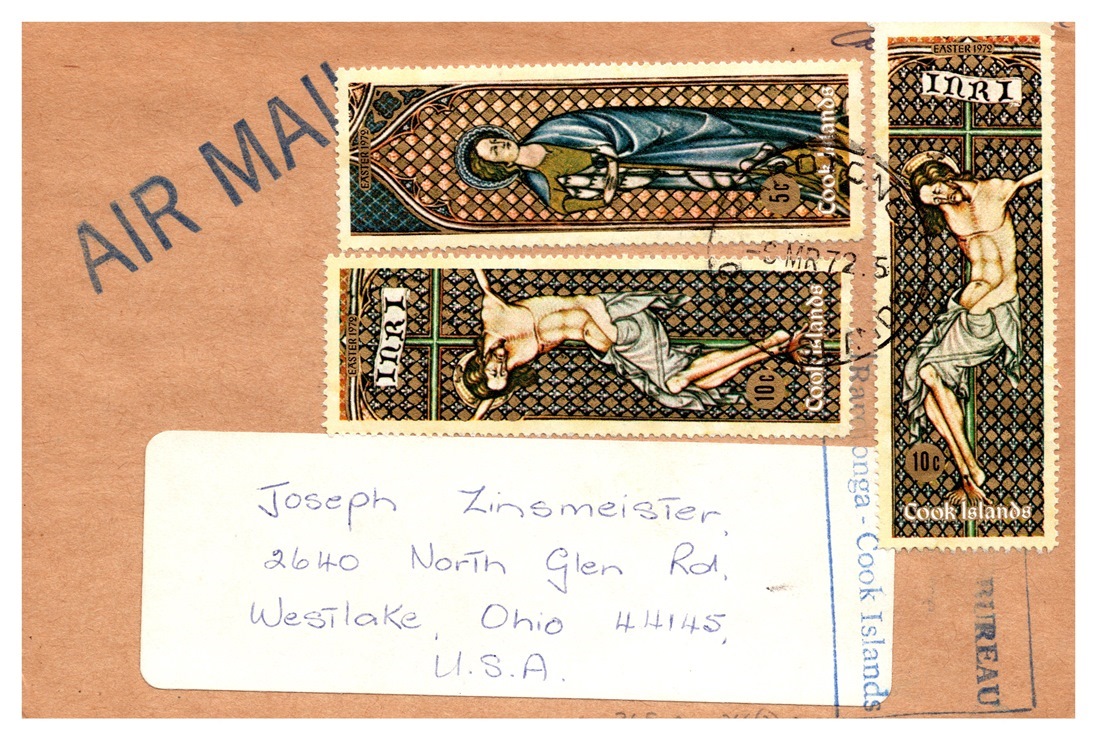 AIR MAIL
EASTER 1972
5c
Cook Islands
EASTER 1972
INRI
10c
Cook Islands
EASTER 1972
INRI
10c
Cook Islands
MR 72
Joseph Zinsmeister,
2640 North Glen Rd.
Westlake, Ohio 44145,
U.S.A.
Cook Islands
BUREAU